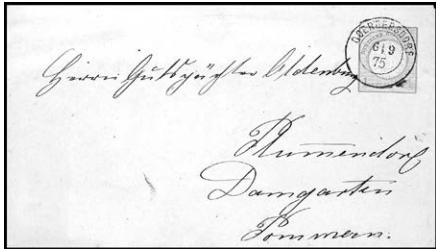 GOERBERSDORF
6 1 9
75
Herrn Gutspächter Oldenburg
Plumendorf
Damgarten
Pommern.